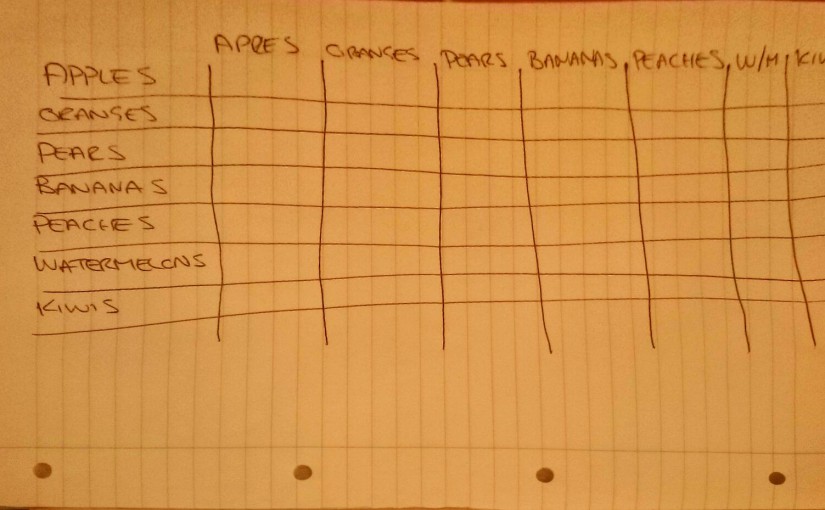 APPLES ORANGES PEARS BANANAS PEACHES W/M KIW
APPLES
ORANGES
PEARS
BANANAS
PEACHES
WATERMELONS
KIWIS